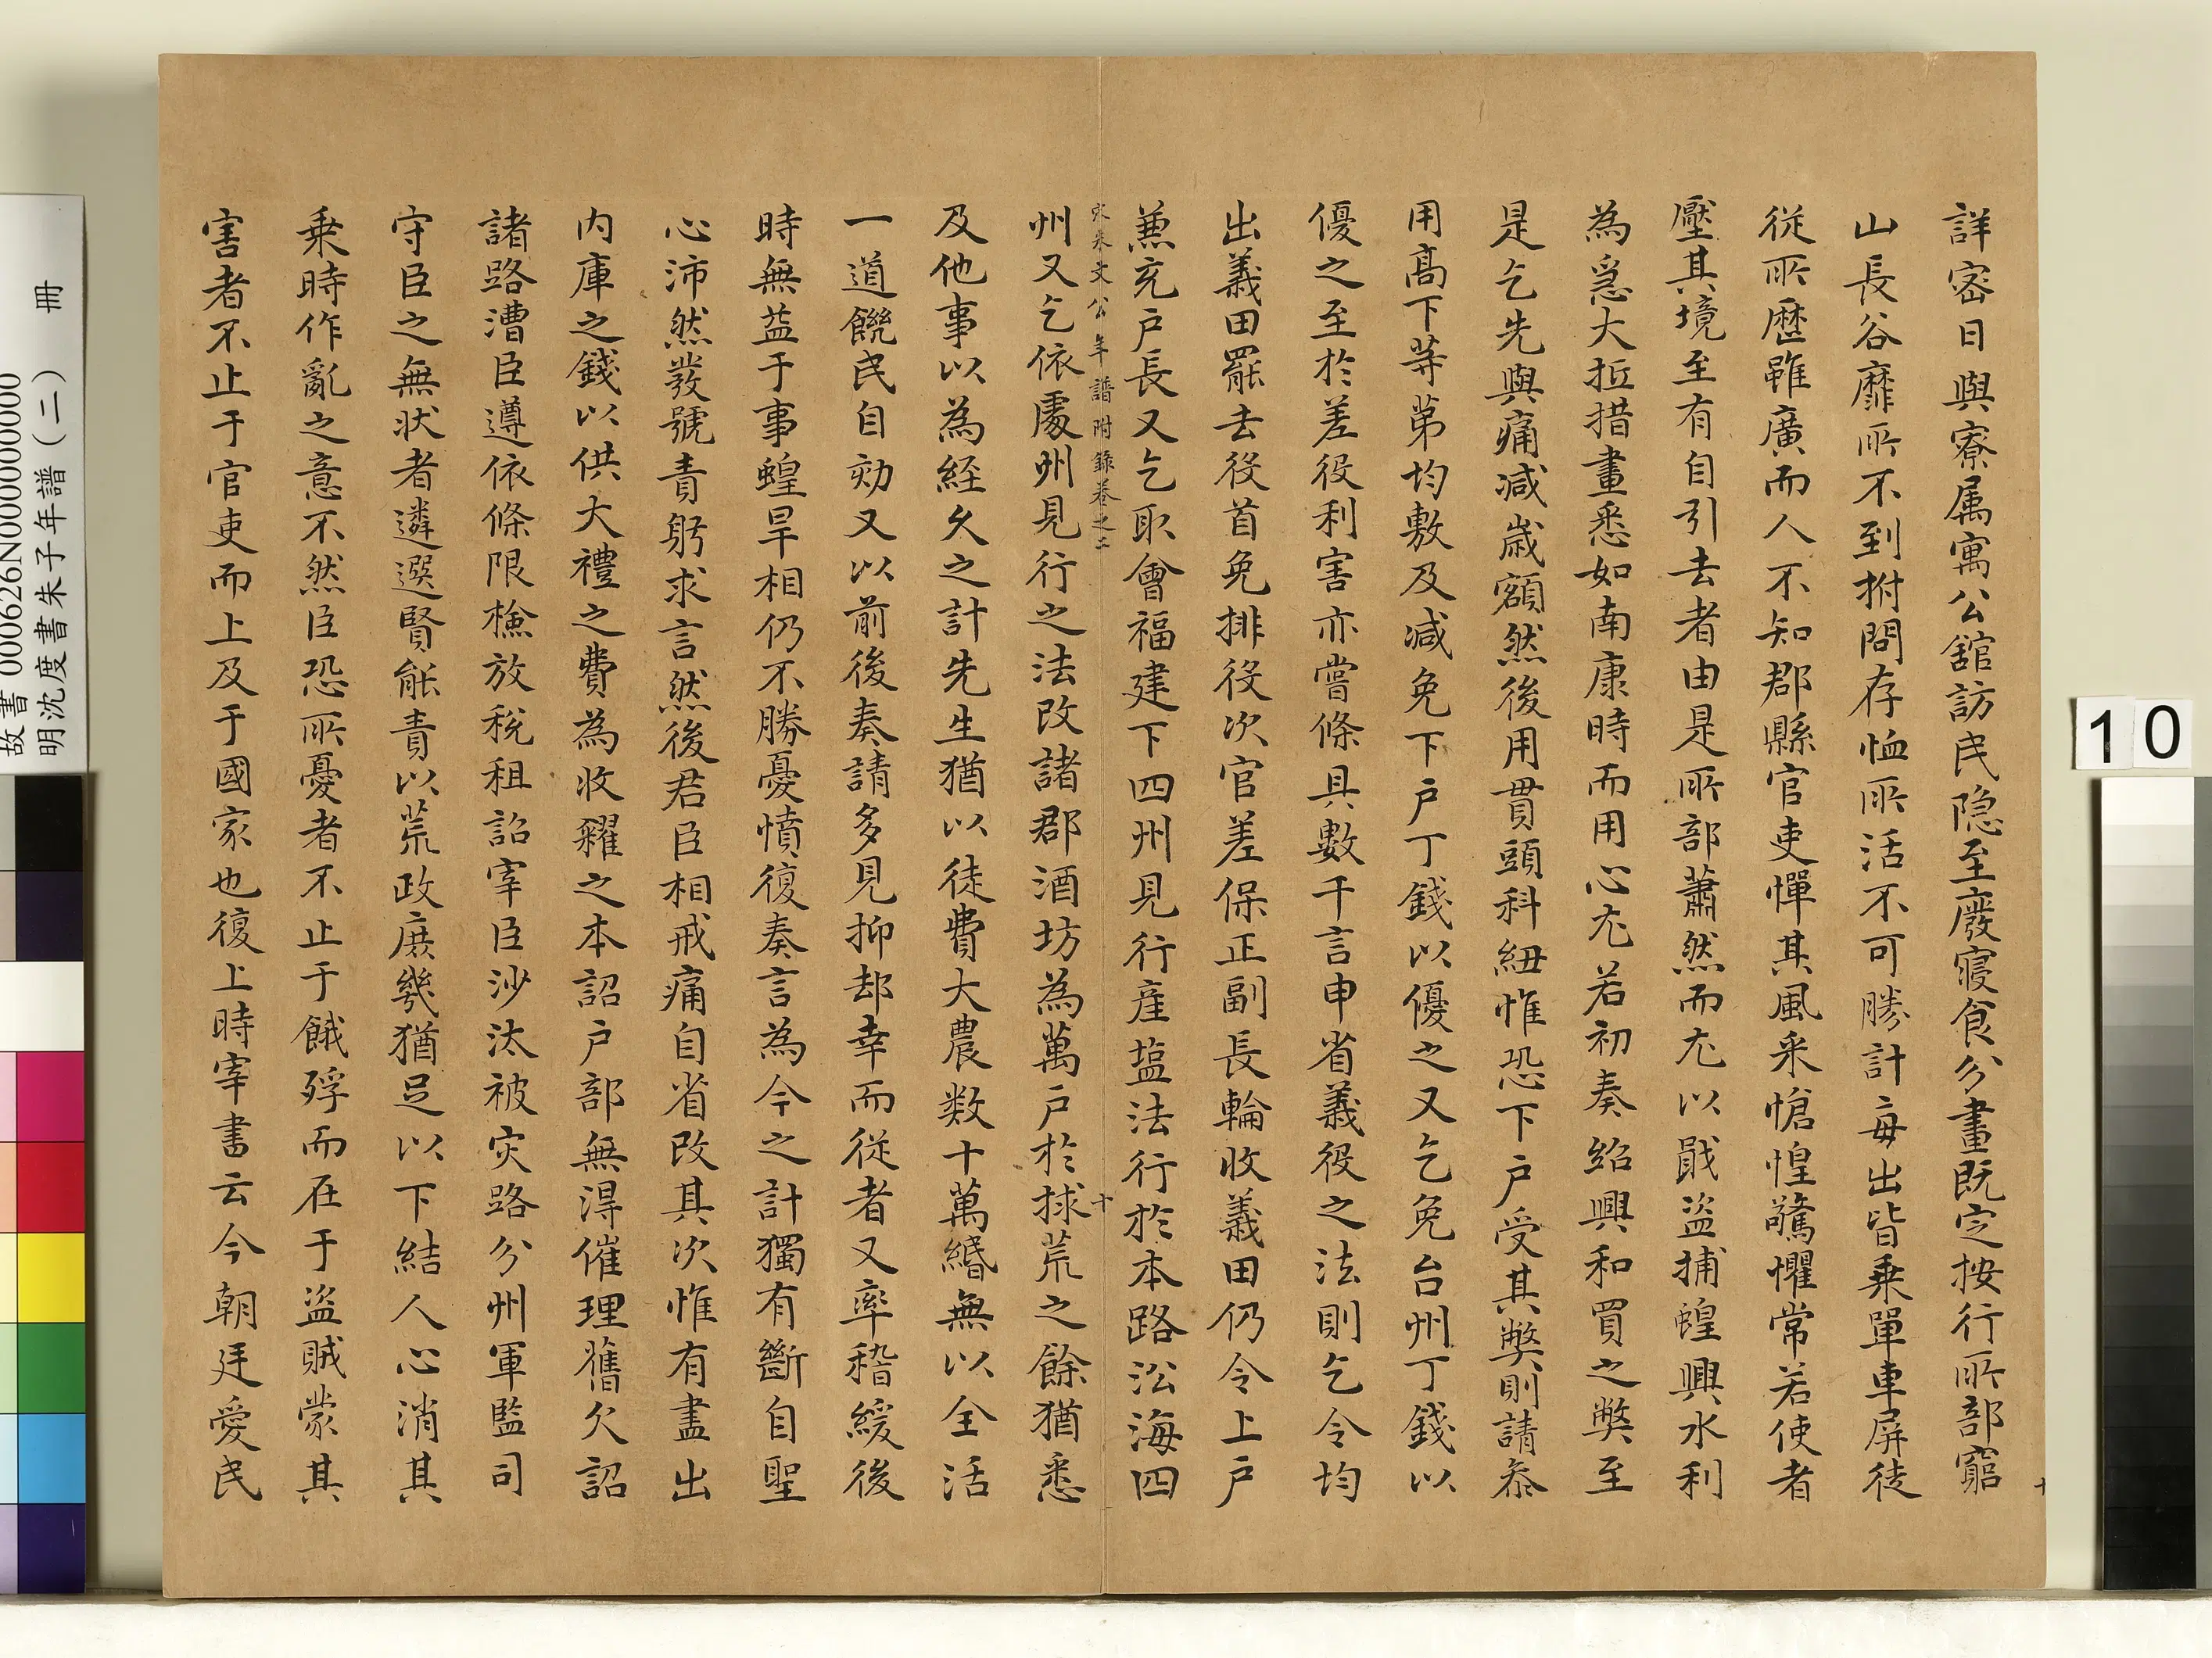 詳密日與寮属寓公舘訪民隐至廢寢食分畫既定按行所部窮
山長谷靡所不到拊問存恤所活不可勝計每出皆乗單車屏徒
従所歴雖廣而人不知郡縣官吏憚其風采愴惶驚懼常若使者
壓其境至有自引去者由是所部蕭然而尤以戢盜捕蝗興水利
為急大抵措畫悉如南康時而用心尤若初奏紹興和買之弊至
是乞先與痛减歲額然後用貫頭科紐惟恐下户受其弊則請叅
用髙下等第均敷及减免下户丁錢以優之又乞免台州丁錢以
優之至於差役利害亦嘗條具數千言申省義役之法則乞令均
出義田罷去役首免排役次官差保正副長輪收義田仍令上户
兼充户長又乞取會福建下四州見行産塩法行於本路沿海四
宋朱文公年譜附錄卷之二 十
州又乞依處州見行之法改諸郡酒坊為萬户於捄荒之餘猶悉
及他事以為経久之計先生猶以徒費大農数十萬緡無以全活
一道饑民自劾又以前後奏請多見抑却幸而従者又率稽緩後
時無益于事蝗旱相仍不勝憂憤復奏言為今之計獨有斷自聖
心沛然發號責躬求言然後君臣相戒痛自省改其次惟有盡出
内庫之錢以供大禮之費為收糴之本詔户部無得催理舊欠詔
諸路漕臣遵依條限檢放税租詔宰臣沙汰被灾路分州軍監司
守臣之無状者遴選賢能責以荒政庶幾猶足以下結人心消其
乗時作亂之意不然臣恐所憂者不止于餓殍而在于盜賊蒙其
害者不止于官吏而上及于國家也復上時宰書云今朝廷愛民
冊
明沈度書朱子年譜（二）
故書000626N000000000
10